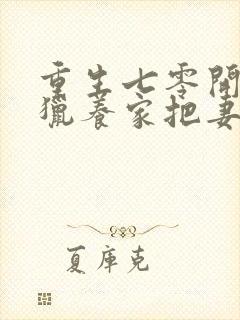 重生七零開
獵養家把妻
夏庫克